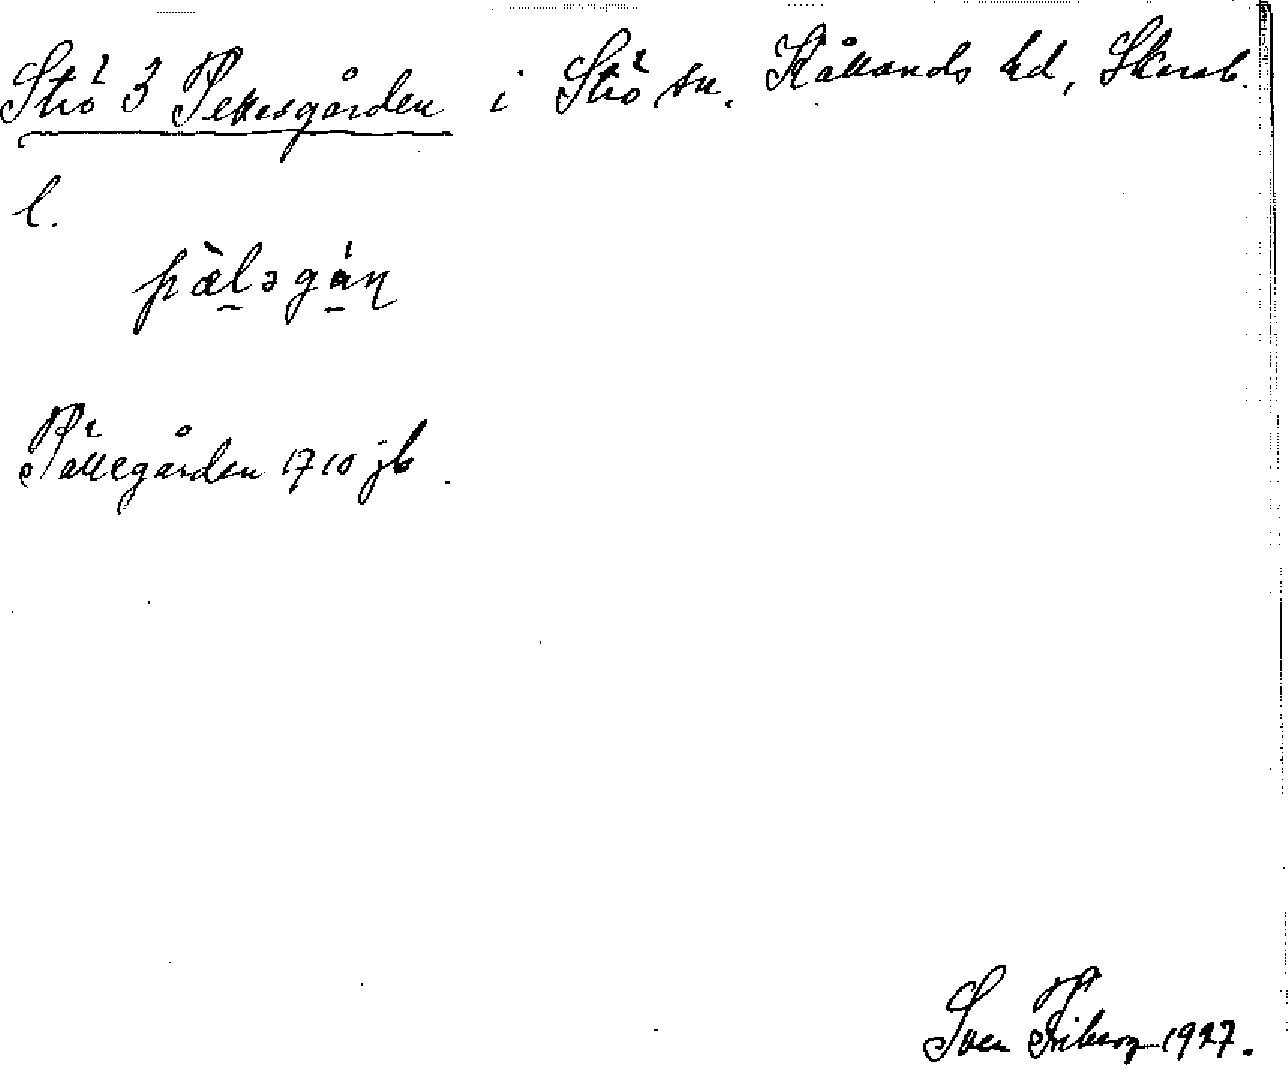 Strö 3 Pellesgården i Strö sn. Kållands hd, Skarab.
l.
pæ̀lǝgán
Pällegården 1710 jb.
Sven Friberg 1927.